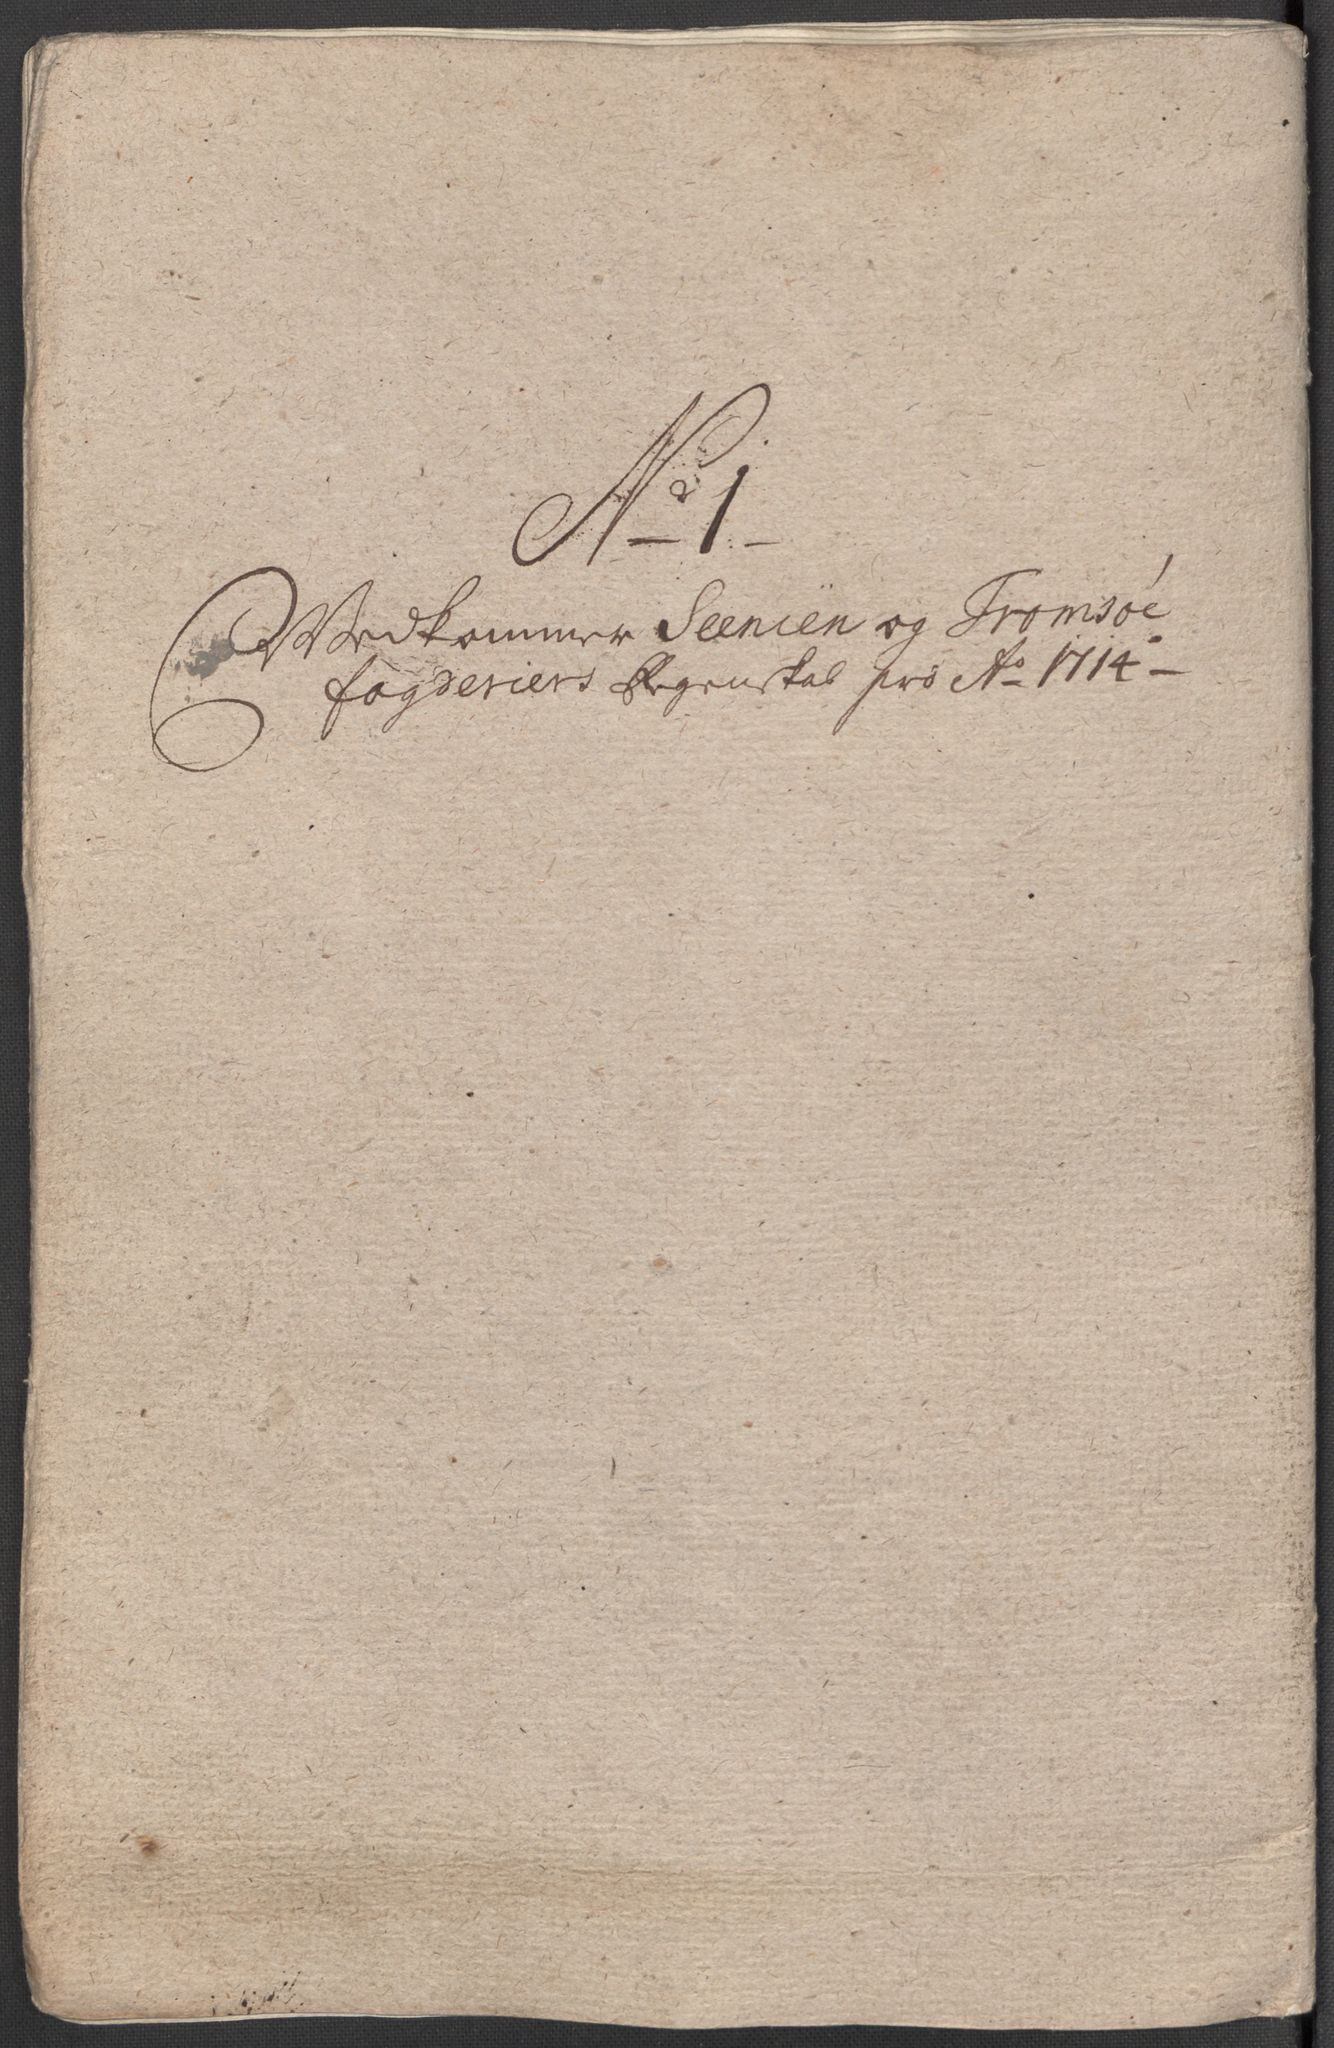 No 1
Vedkommer Seenien og Tromsöe
fogderiers Regenskab pro Ao 1714